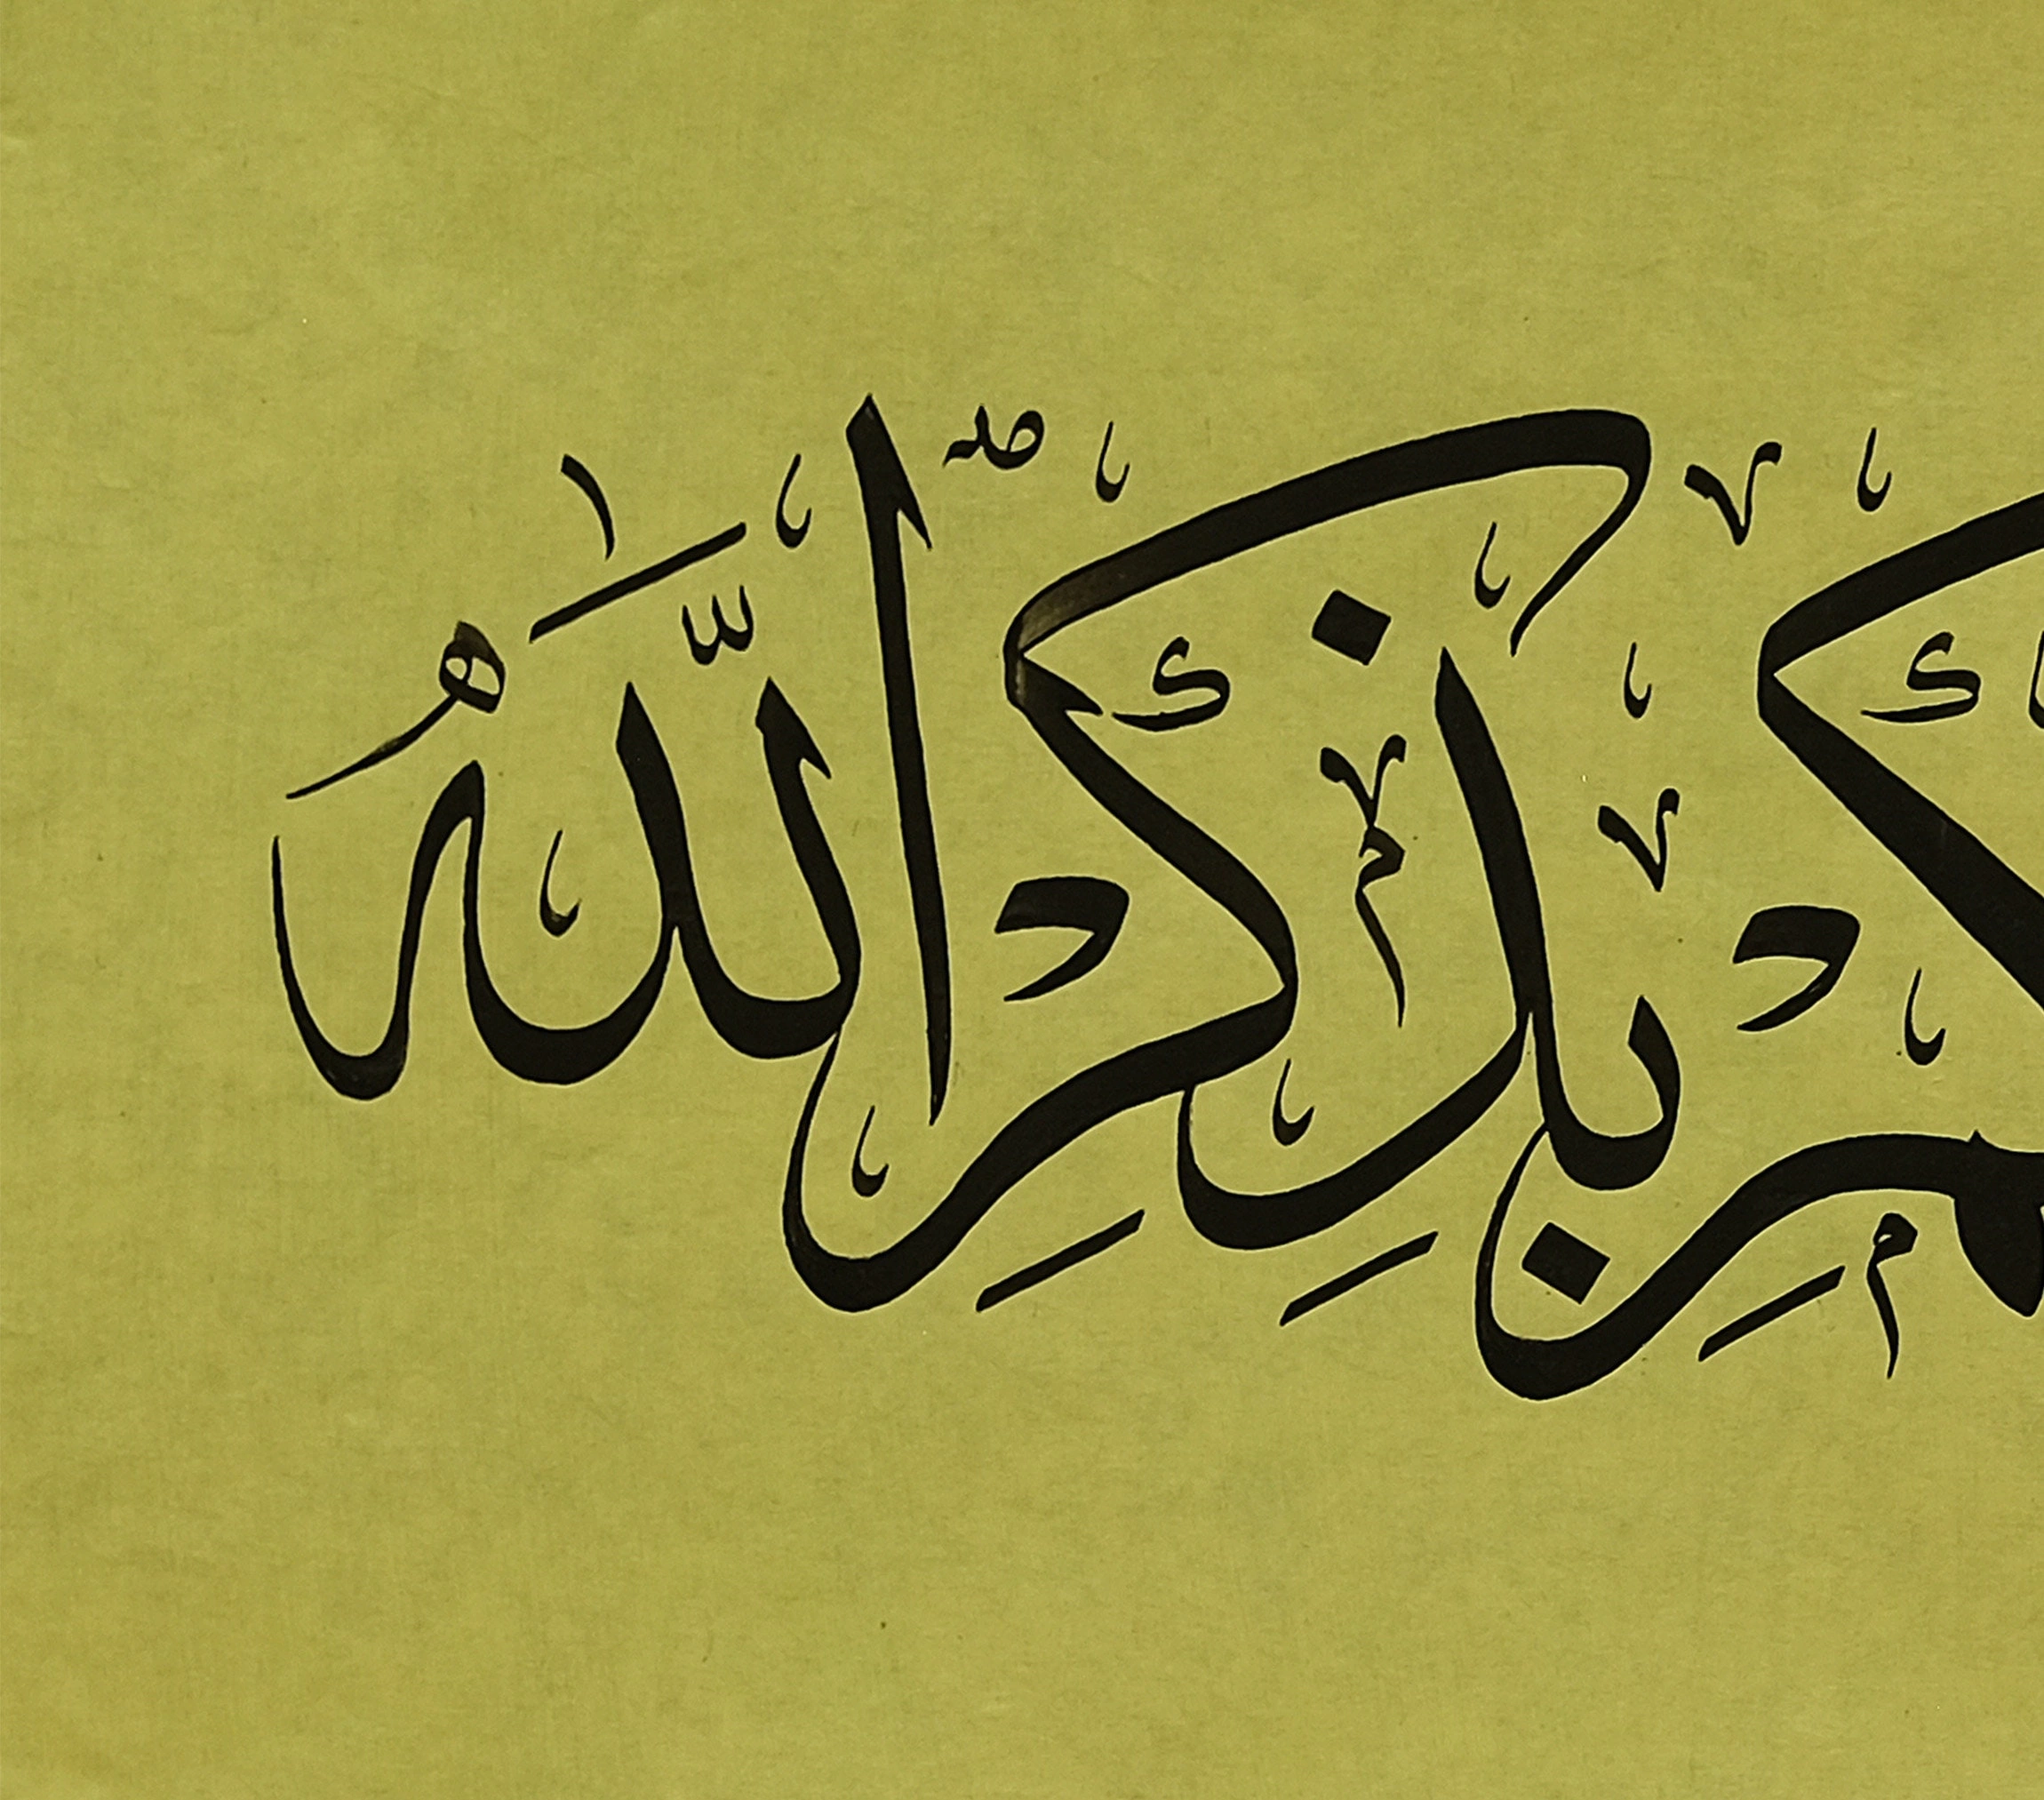 كم بذكر الله